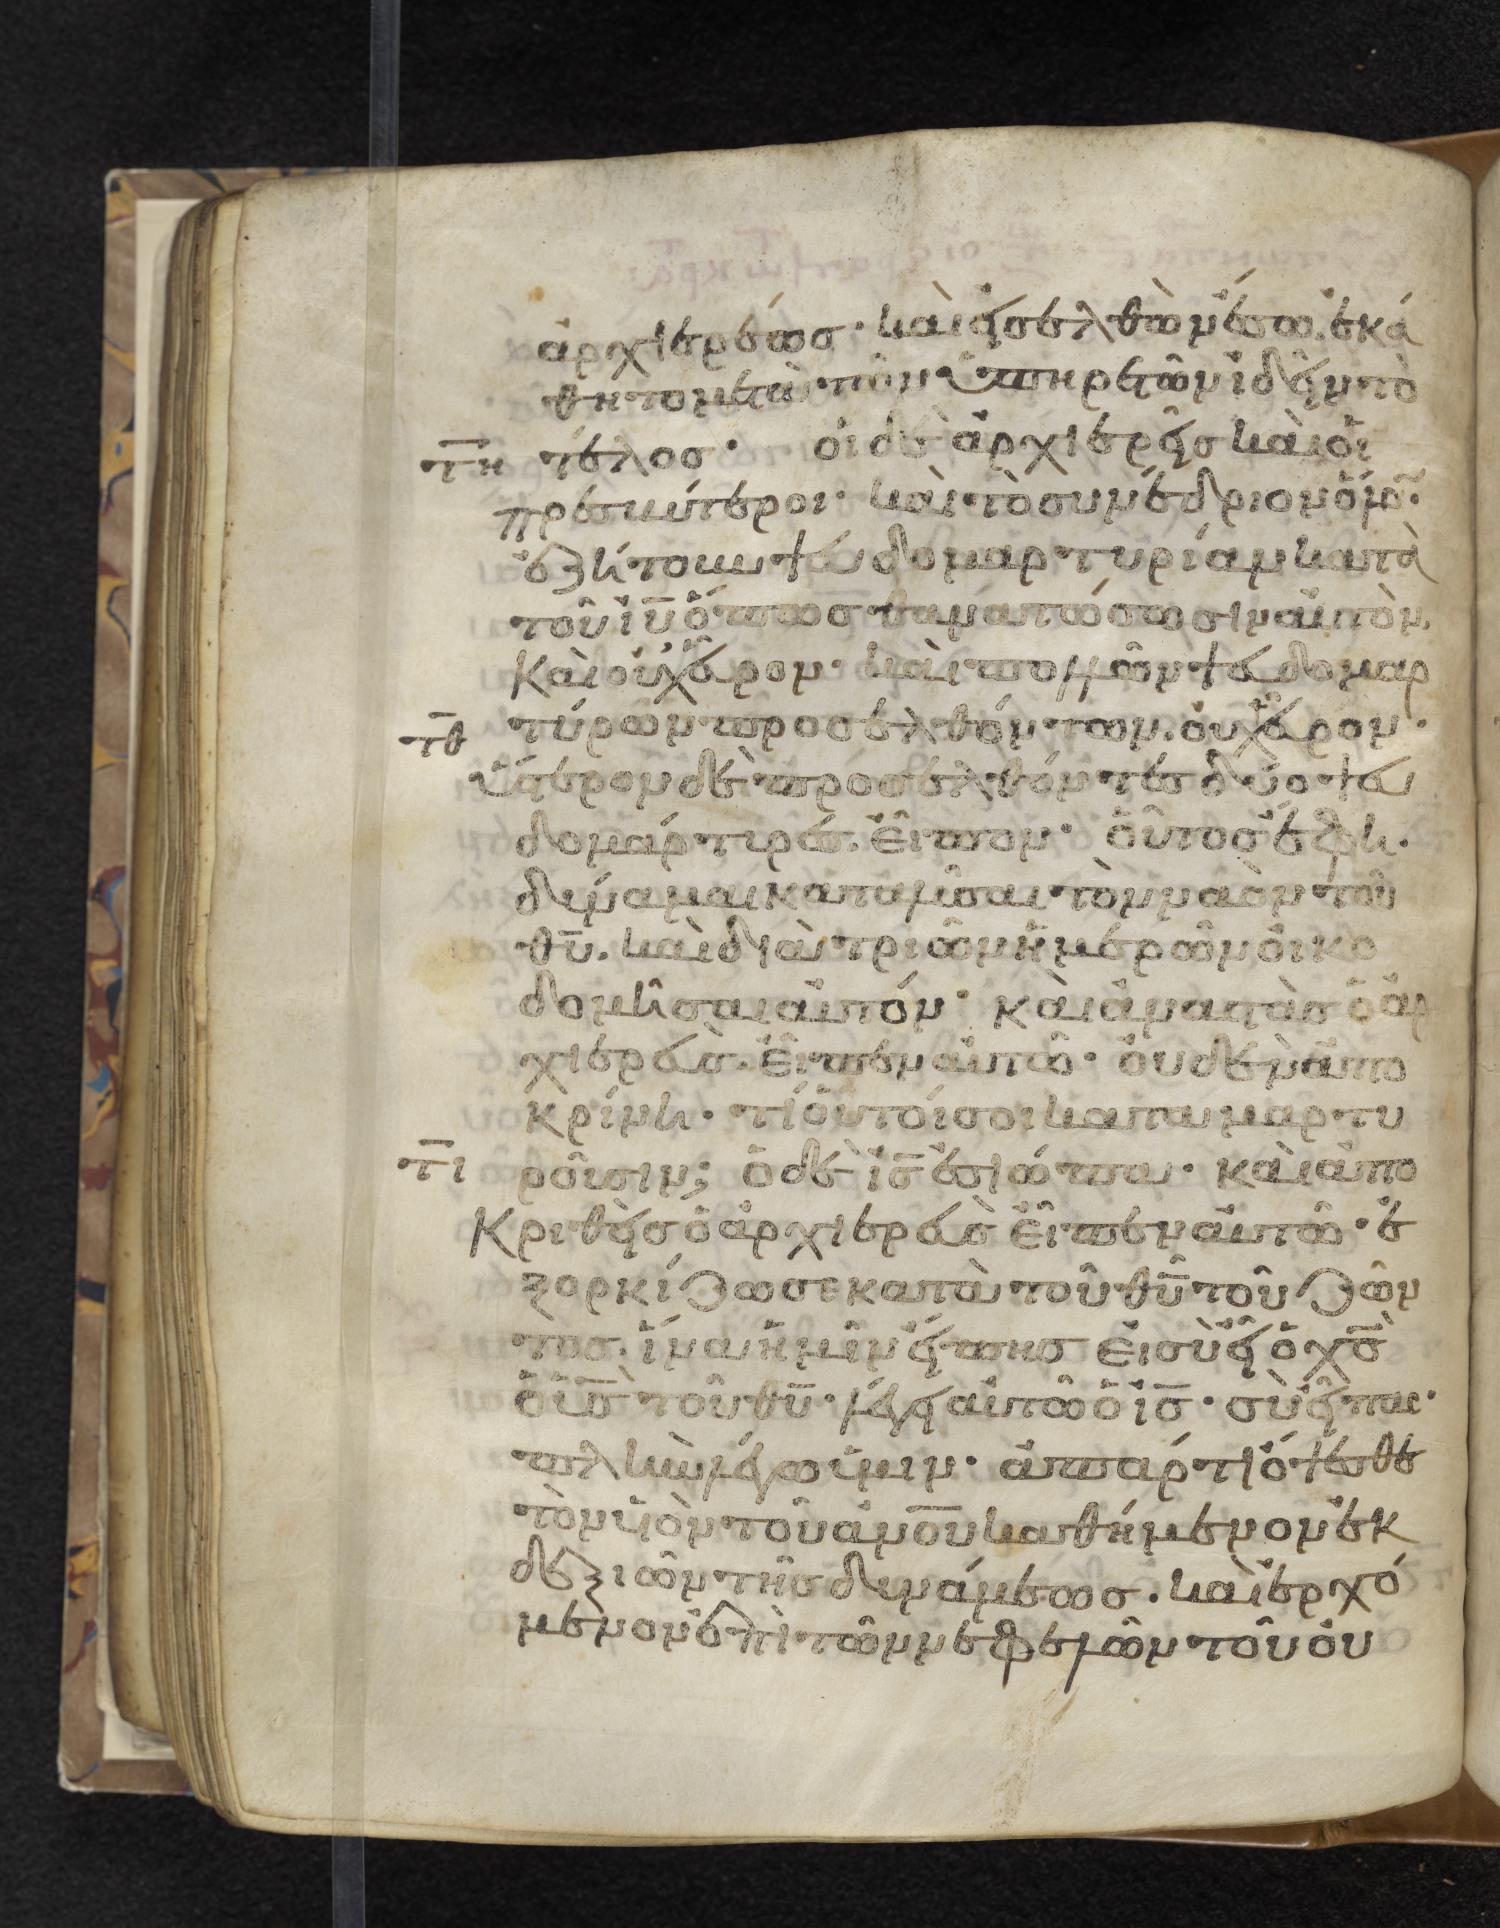 ἀρχιερέως· καὶ εἰσελθὼν ἔσω. ἐκά
θητο μετὰ τῶν ὑπηρετῶν ἰδεῖν τὸ
τη τέλος· οἱ δὲ ἀρχιερεῖς καὶ οἱ
πρεσβύτεροι· καὶ τὸ συνέδριον ὅλον·
ἐζήτουν ψευδομαρτυρίαν κατὰ
τοῦ ιυ ὅπως θανατώσωσιν αὐτὸν,
καὶ οὐχ εὗρον· καὶ πολλῶν ψευδομαρ
τθ τύρων προσελθόντων. οὐχ εὗρον·
ὕστερον δὲ προσελθόντες δύο ψευ
δομάρτυρες. εἶπον· οὗτος ἔφη.
δύναμαι καταλῦσαι τὸν ναὸν τοῦ
θυ. καὶ διὰ τριῶν ἡμερῶν οἰκο
δομῆσαι αὐτόν· καὶ ἀναστὰς ὁ ἀρ
χιερεὺς. εἶπεν αὐτῶ· οὐδὲν ἀπο
κρίνη· τί οὗτοί σοι καταμαρτυ
τι ροῦσιν; ὁ δὲ ις ἐσιώπα· καὶ ἀπο
κριθεὶς ὁ ἀρχιερεὺς εἶπεν αὐτῶ· ἐ
ξορκίζω σε κατὰ τοῦ θυ τοῦ ζῶν
τος. ἵνα ἡμῖν εἴπης εἰ σὺ εἶ ὁ χς
ὁ υς τοῦ θυ· λέγει αὐτῶ ὁ ις· σὺ εἶπας·
πλὴν λέγω ὑμιν· ἀπάρτι ὄψεσθε
τὸν υἱὸν τοῦ ανου καθήμενον ἐκ
δεξιῶν τῆς δυνάμεως. καὶ ἐρχό
μενον ἐπὶ τῶν νεφελῶν τοῦ οὐ